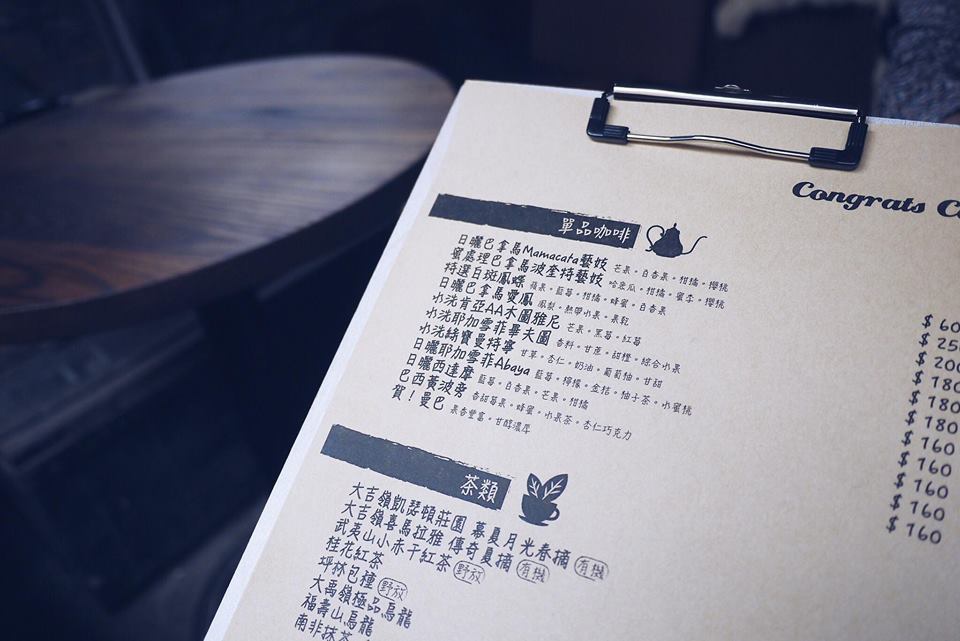 Congrats C
單品咖啡
日曬巴拿馬Mamacata藝妓 芒果。白香果。柑橘。櫻桃
蜜處理巴拿馬波奎特藝妓 哈密瓜。柑橘。蜜李。櫻桃
特選白斑鳳蝶 蘋果。藍莓。柑橘。蜂蜜。白香果
日曬巴拿馬愛鳳 鳳梨。熱帶水果。果乾
水洗肯亞AA木圖雅尼 芒果。黑莓。紅莓
水洗耶加雪菲畢夫圖 香料。甘蔗。甜橙。綜合水果
水洗絲寶曼特寧 甘草。杏仁。奶油。葡萄柚。甘甜
日曬耶加雪菲Abaya 藍莓。檸檬。金桔。柚子茶。水蜜桃
日曬西達摩 藍莓。白香果。芒果。柑橘
巴西黃波旁 香甜莓果。蜂蜜。水果茶。杏仁巧克力
賀！曼巴 果香豐富。甘醇濃厚
$ 60
$ 25
$ 200
$ 180
$ 180
$ 180
$ 160
$ 160
$ 160
$ 160
$ 160
茶類
大吉嶺凱瑟頓莊園 慕夏月光春摘 有機
大吉嶺喜馬拉雅 傳奇夏摘 有機
武夷山小赤干紅茶 野放
桂花紅茶
坪林包種 野放
大禹嶺極品烏龍
福壽山烏龍
南非抹茶